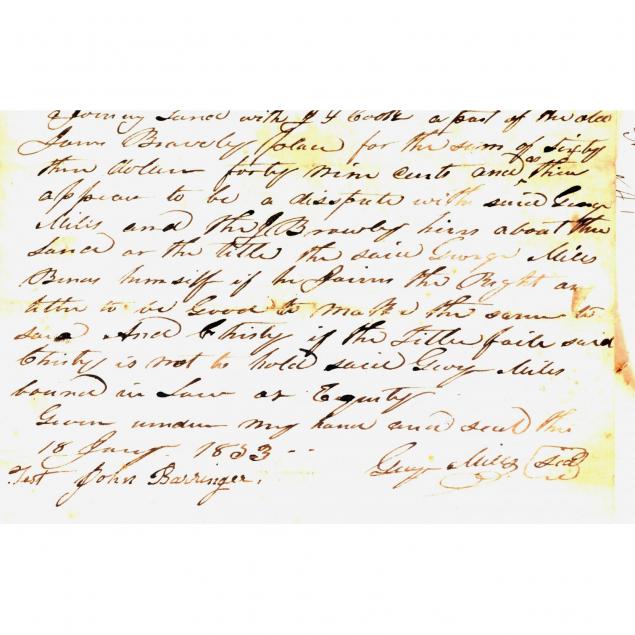 a Joining Land with J Y Cook a part of the old
James Braveby place for the sum of Sixty
three dolars forty nine cents and as thire
appear to be a dispute with said George
Miles and the J Brawby hirs about the
Land or the title the said George Miles
Binds himsiff if he Joins the Right or
title to be Good to make the same to
said And Christy if the Title fails said
Christy is not to hold said Georg Miles
bound in Law or Equity
Given under my hand and seal this
18 Jany 1833
Test John Barringer.
Georg Miles Seal